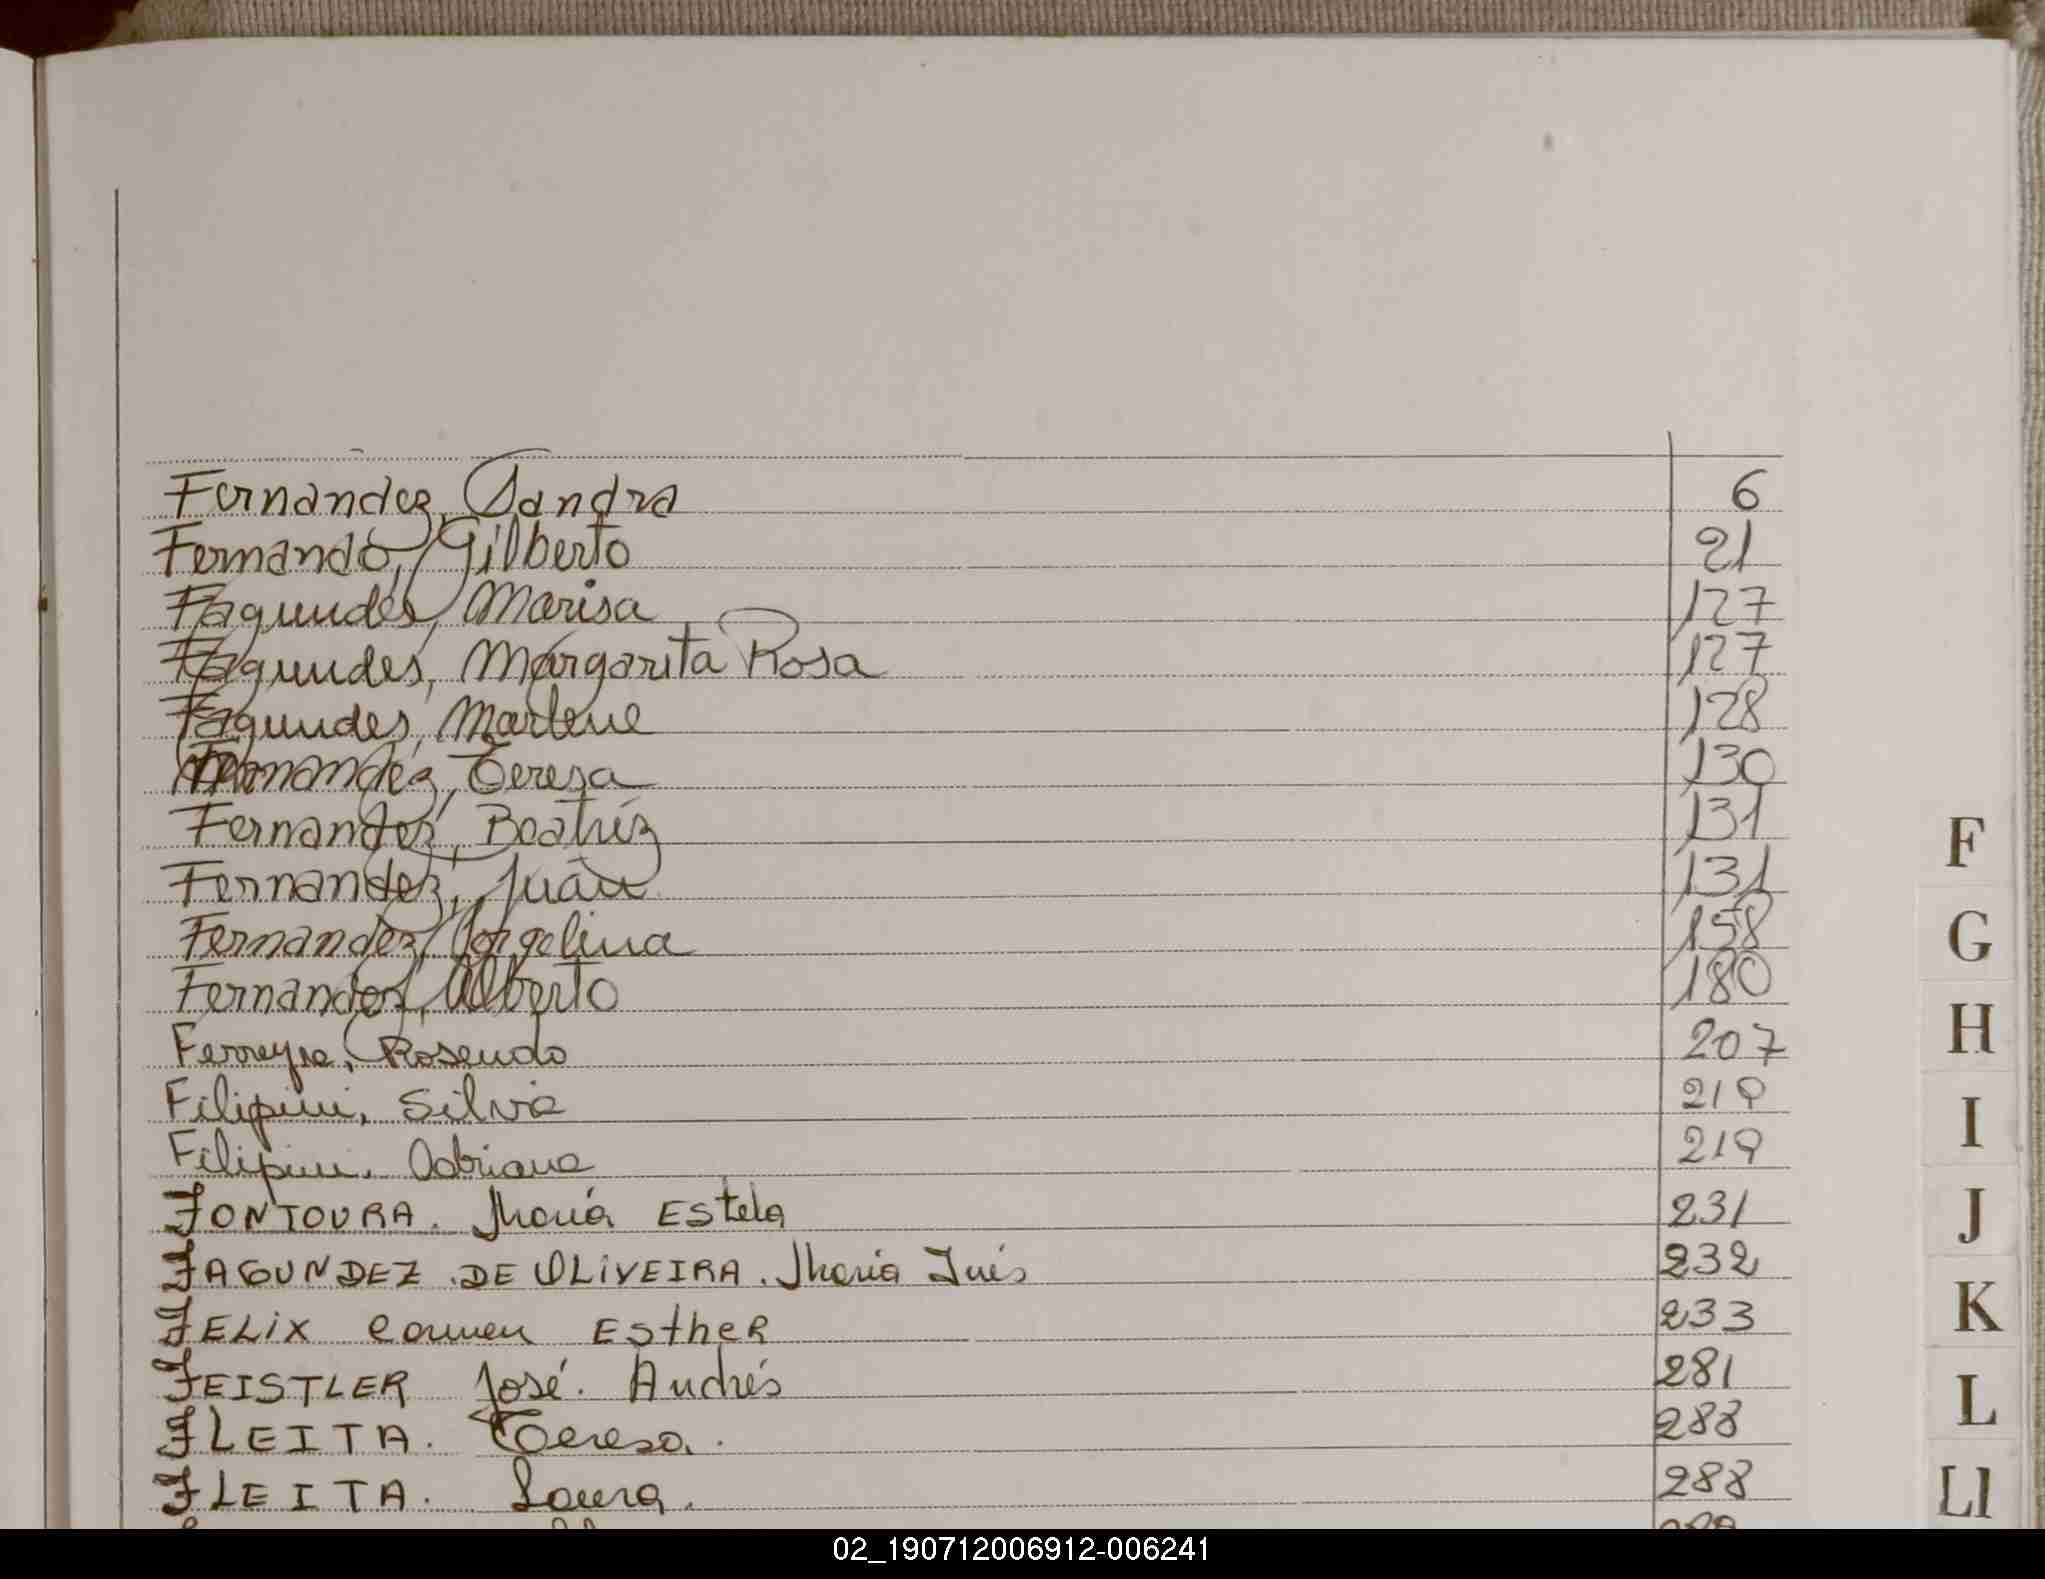 Fernandez, Sandra 6
Fernando, Gilberto 21
Fagundes, Marisa 127
Fagundes, Margarita Rosa 127
Fagundes, Marlene 128
Fernandez, Teresa 130
Fernandez, Beatriz 131
Fernandez, Juan 131
Fernandez, Jorgelina 158
Fernandez, Alberto 180
Ferreyra, Rosendo 207
Filipini, Silvia 219
Filipini, Adriana 219
FONTOURA. María EStela 231
FAGUNDEZ DE OLiVEIRA. María Inés 232
FELiX Carmen ESthER 233
FEISTLER José. Andrés 281
FLEITA. Teresa. 288
FLEITA. Laura. 288
F
G
H
I
J
K
L
Ll
02_190712006912-006241